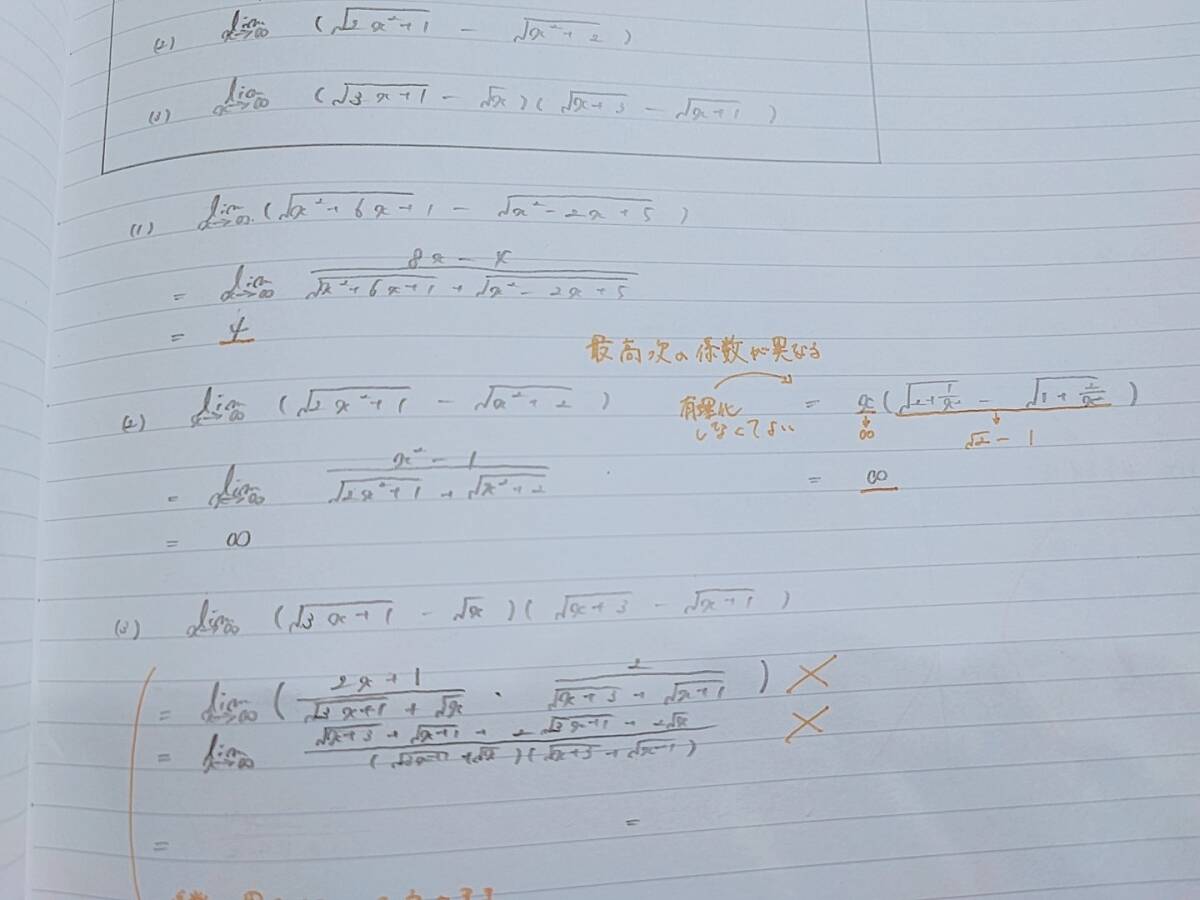 (2) lim x→∞ (√(2x²+1) − √(x²+2))
(3) lim x→∞ (√(3x+1) − √x)(√(x+3) − √(x+1))
(1) lim x→∞ (√(x²+6x+1) − √(x²−2x+5))
= lim x→∞ (8x−4)/(√(x²+6x+1) + √(x²−2x+5))
= 4
最高次の係数が異なる
(2) lim x→∞ (√(2x²+1) − √(x²+2))
有理化
しなくてよい
= x(√(2+1/x²) − √(1+2/x²))
∞ √2 − 1
= lim x→∞ (x²−1)/(√(2x²+1) + √(x²+2))
= ∞
= ∞
(3) lim x→∞ (√(3x+1) − √x)(√(x+3) − √(x+1))
= lim x→∞ ((2x+1)/(√(3x+1) + √x) · 2/(√(x+3) + √(x+1))) ×
= lim x→∞ (√(x+3) + √(x+1) + 2√(3x+1) + 2√x)/((√(3x+1) + √x)(√(x+3) + √(x+1))) ×
=
=